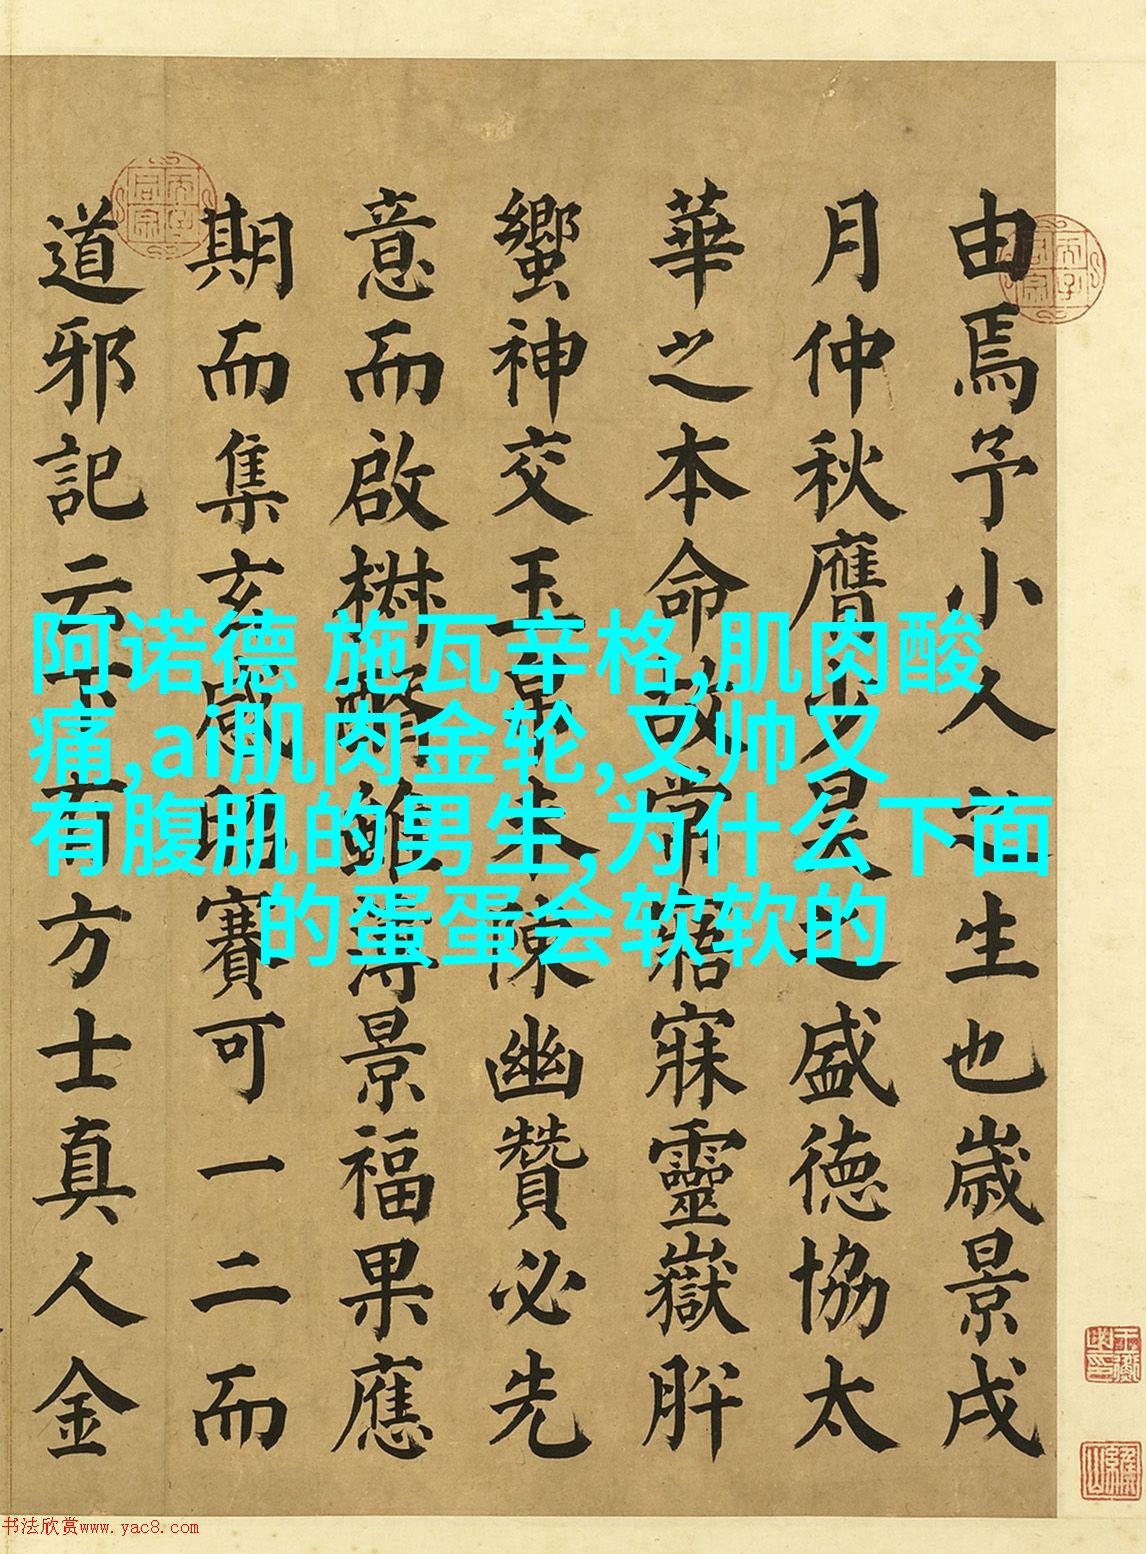 由焉予小久生也歲景戌
月仲秋膺少昊之盛德協太
華之本命故常寤寐靈嶽肸
蠁神交玉未陳幽贊必先
意而啟雖薄景福果應
期而集玄感昭賽可一二而
道邪記云有方士真人金
阿诺德 施瓦辛格,肌肉酸
痛,ai肌肉金轮,又帅又
有腹肌的男生,为什么下面
的蛋蛋会软软的
书法欣赏www.yac8.com